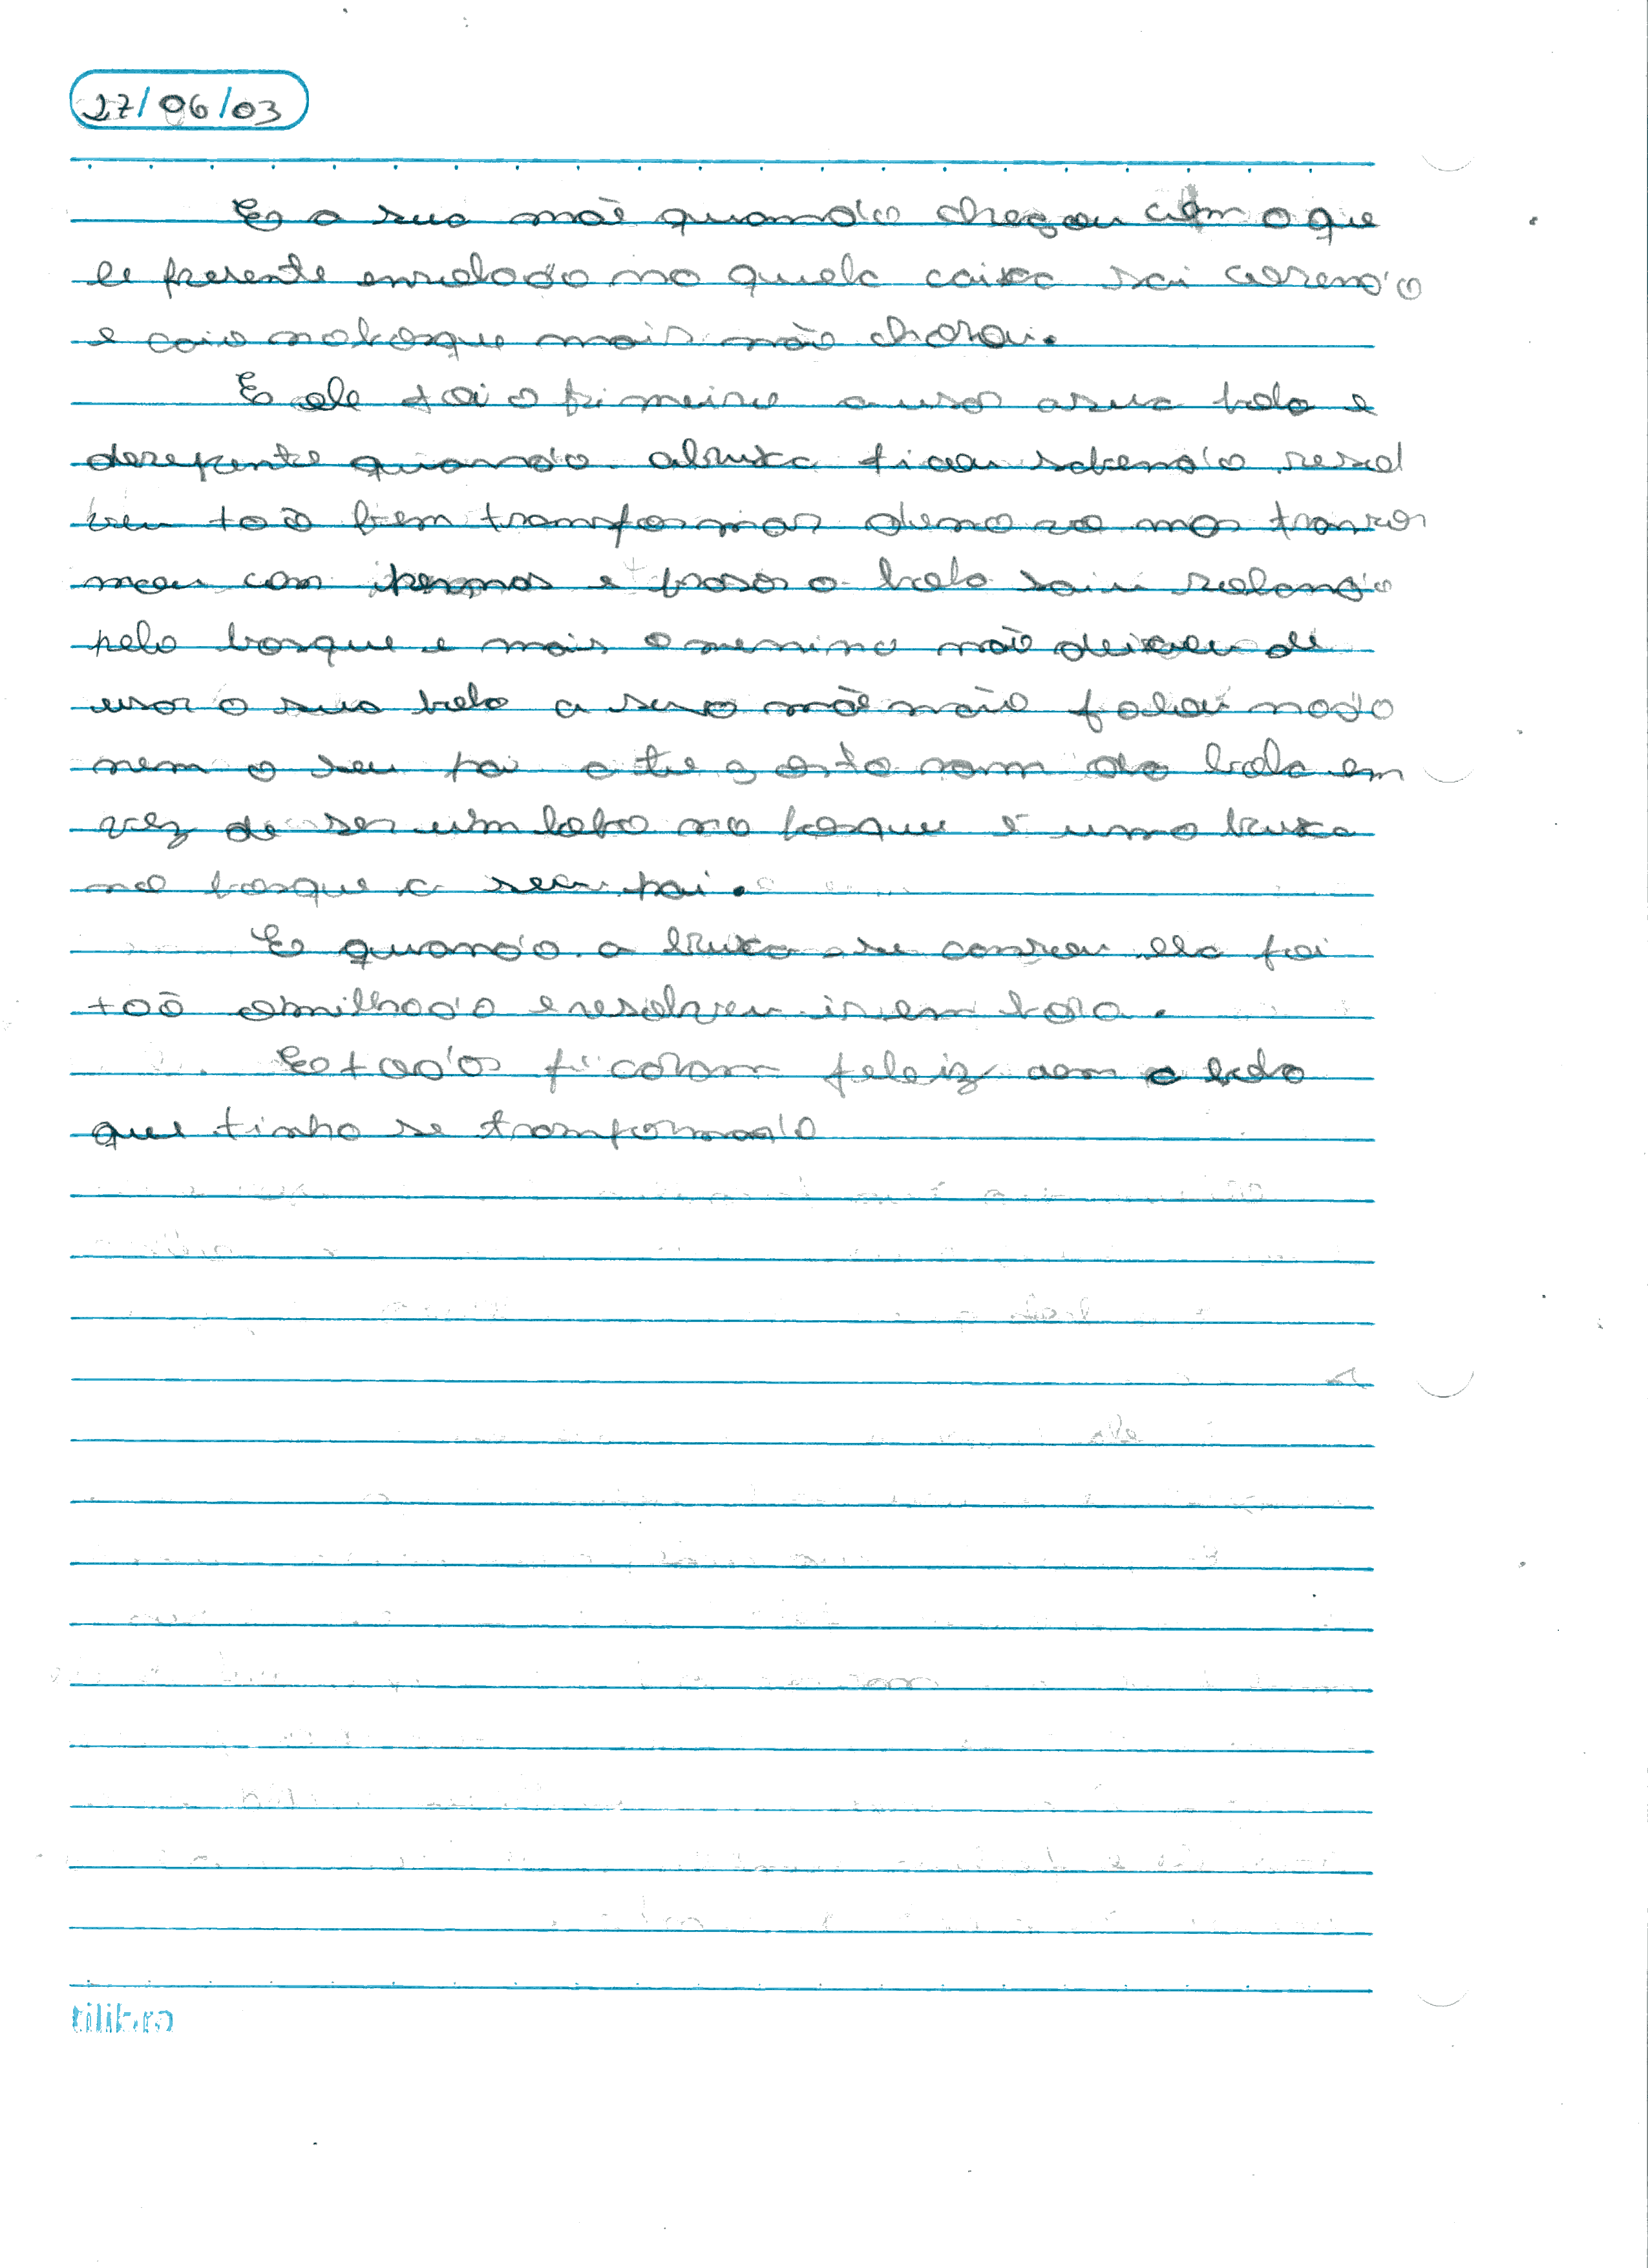 27/06/03
E a sua mãe quando chegou com o que
le presente enrolado na quela caixa sai corendo
e caio nobosque mais não chorou.
E ele foi o primeiro a usar asua bola e
derepente quando abruxa ficou sabendo resol
veu toõ bem transformar
mou com pernas e a bola saiu rolando
pelo bosque e mais omenino não deixou de
usar a sua bola a sua mãe não falou nada
nem o seu pai a te gostaram da bola em
vez de ser um lobo no bosque é uma bruxa
no bosque seu pai.
E quando a bruxa se cansou ela foi
toõ omilhado eresolveu ir em bora.
E todos ficaram feliz com a bola
que tinha se tranformado
tilibra